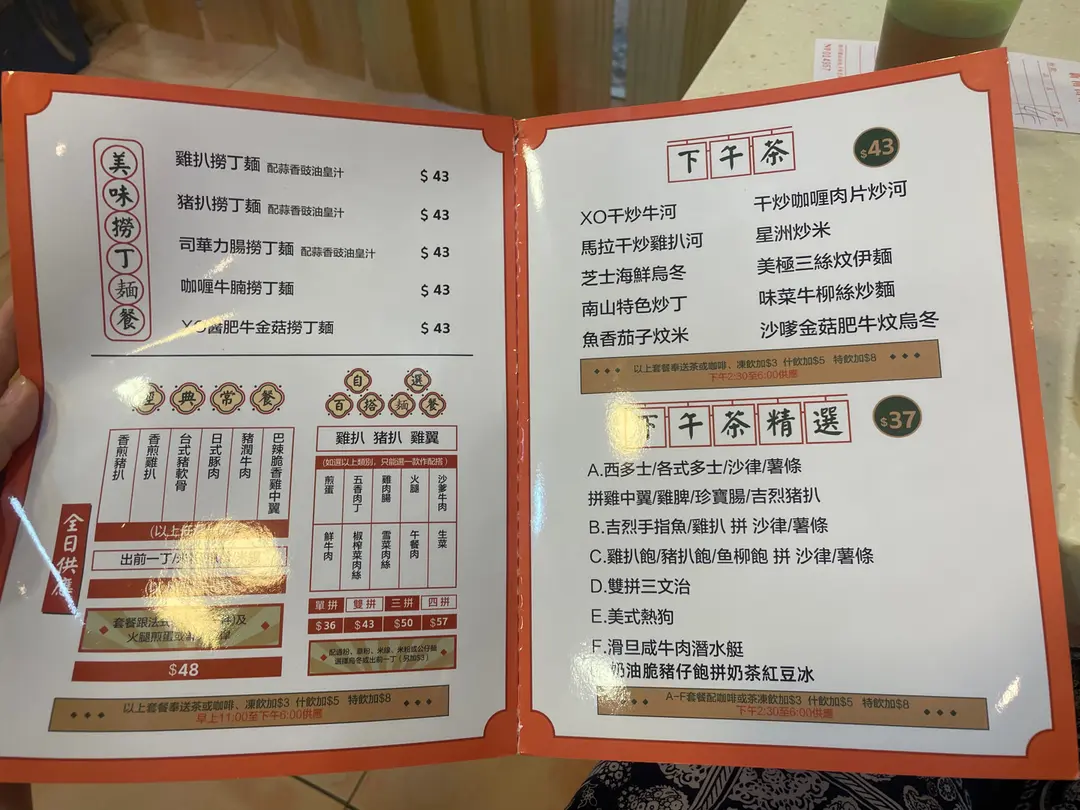 美味撈丁麵餐
雞扒撈丁麵 配蒜香豉油皇汁 $43
豬扒撈丁麵 配蒜香豉油皇汁 $43
司華力腸撈丁麵 配蒜香豉油皇汁 $43
咖喱牛腩撈丁麵 $43
XO醬肥牛金菇撈丁麵 $43
經典常餐
香煎豬扒
香煎雞扒
台式豬軟骨
日式豚肉
豬潤牛肉
巴辣脆香雞中翼
全日供應
(以上
出前一丁/
套餐跟法式
及
火腿煎蛋
$48
自選
百搭麵餐
雞扒 豬扒 雞翼
(如選以上類別，只能選一款作配搭)
煎蛋 五香肉丁 雞肉腸 火腿 沙爹牛肉
鮮牛肉 椒榨菜肉絲 雪菜肉絲 午餐肉 生菜
單拼 雙拼 三拼 四拼
$36 $43 $50 $57
配通粉、意粉、米線、米粉或公仔麵
選擇烏冬或出前一丁 (另加$3)
以上套餐奉送茶或咖啡、凍飲加$3 什飲加$5 特飲加$8
早上11:00至下午6:00供應
下午茶 $43
XO干炒牛河 干炒咖喱肉片炒河
馬拉干炒雞扒河 星洲炒米
芝士海鮮烏冬 美極三絲炆伊麵
南山特色炒丁 味菜牛柳絲炒麵
魚香茄子炆米 沙嗲金菇肥牛炆烏冬
以上套餐奉送茶或咖啡、凍飲加$3 什飲加$5 特飲加$8
下午2:30至6:00供應
下午茶精選 $37
A.西多士/各式多士/沙律/薯條
拼雞中翼/雞脾/珍寶腸/吉烈猪扒
B.吉烈手指魚/雞扒 拼 沙律/薯條
C.雞扒飽/豬扒飽/鱼柳飽 拼 沙律/薯條
D.雙拼三文治
E.美式熱狗
F.滑旦咸牛肉潛水艇
奶油脆豬仔飽拼奶茶紅豆冰
A-F套餐配咖啡或茶凍飲加$3 什飲加$5 特飲加$8
下午2:30至6:00供應